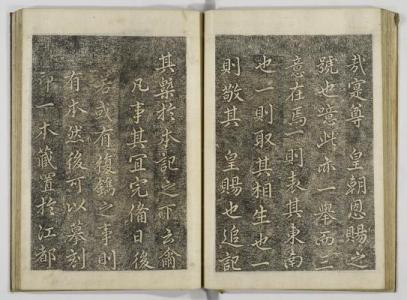 哉寔尊 皇朝恩賜之
號也噫此亦一舉而三
意在焉一則表其東南
也一則取其相生也一
則敬其 皇賜也追記
其槩於木記之而云爾
凡事其宜完備日後
若或有復鐫之事則
有本然後可以摹刻
印一本藏置於江都